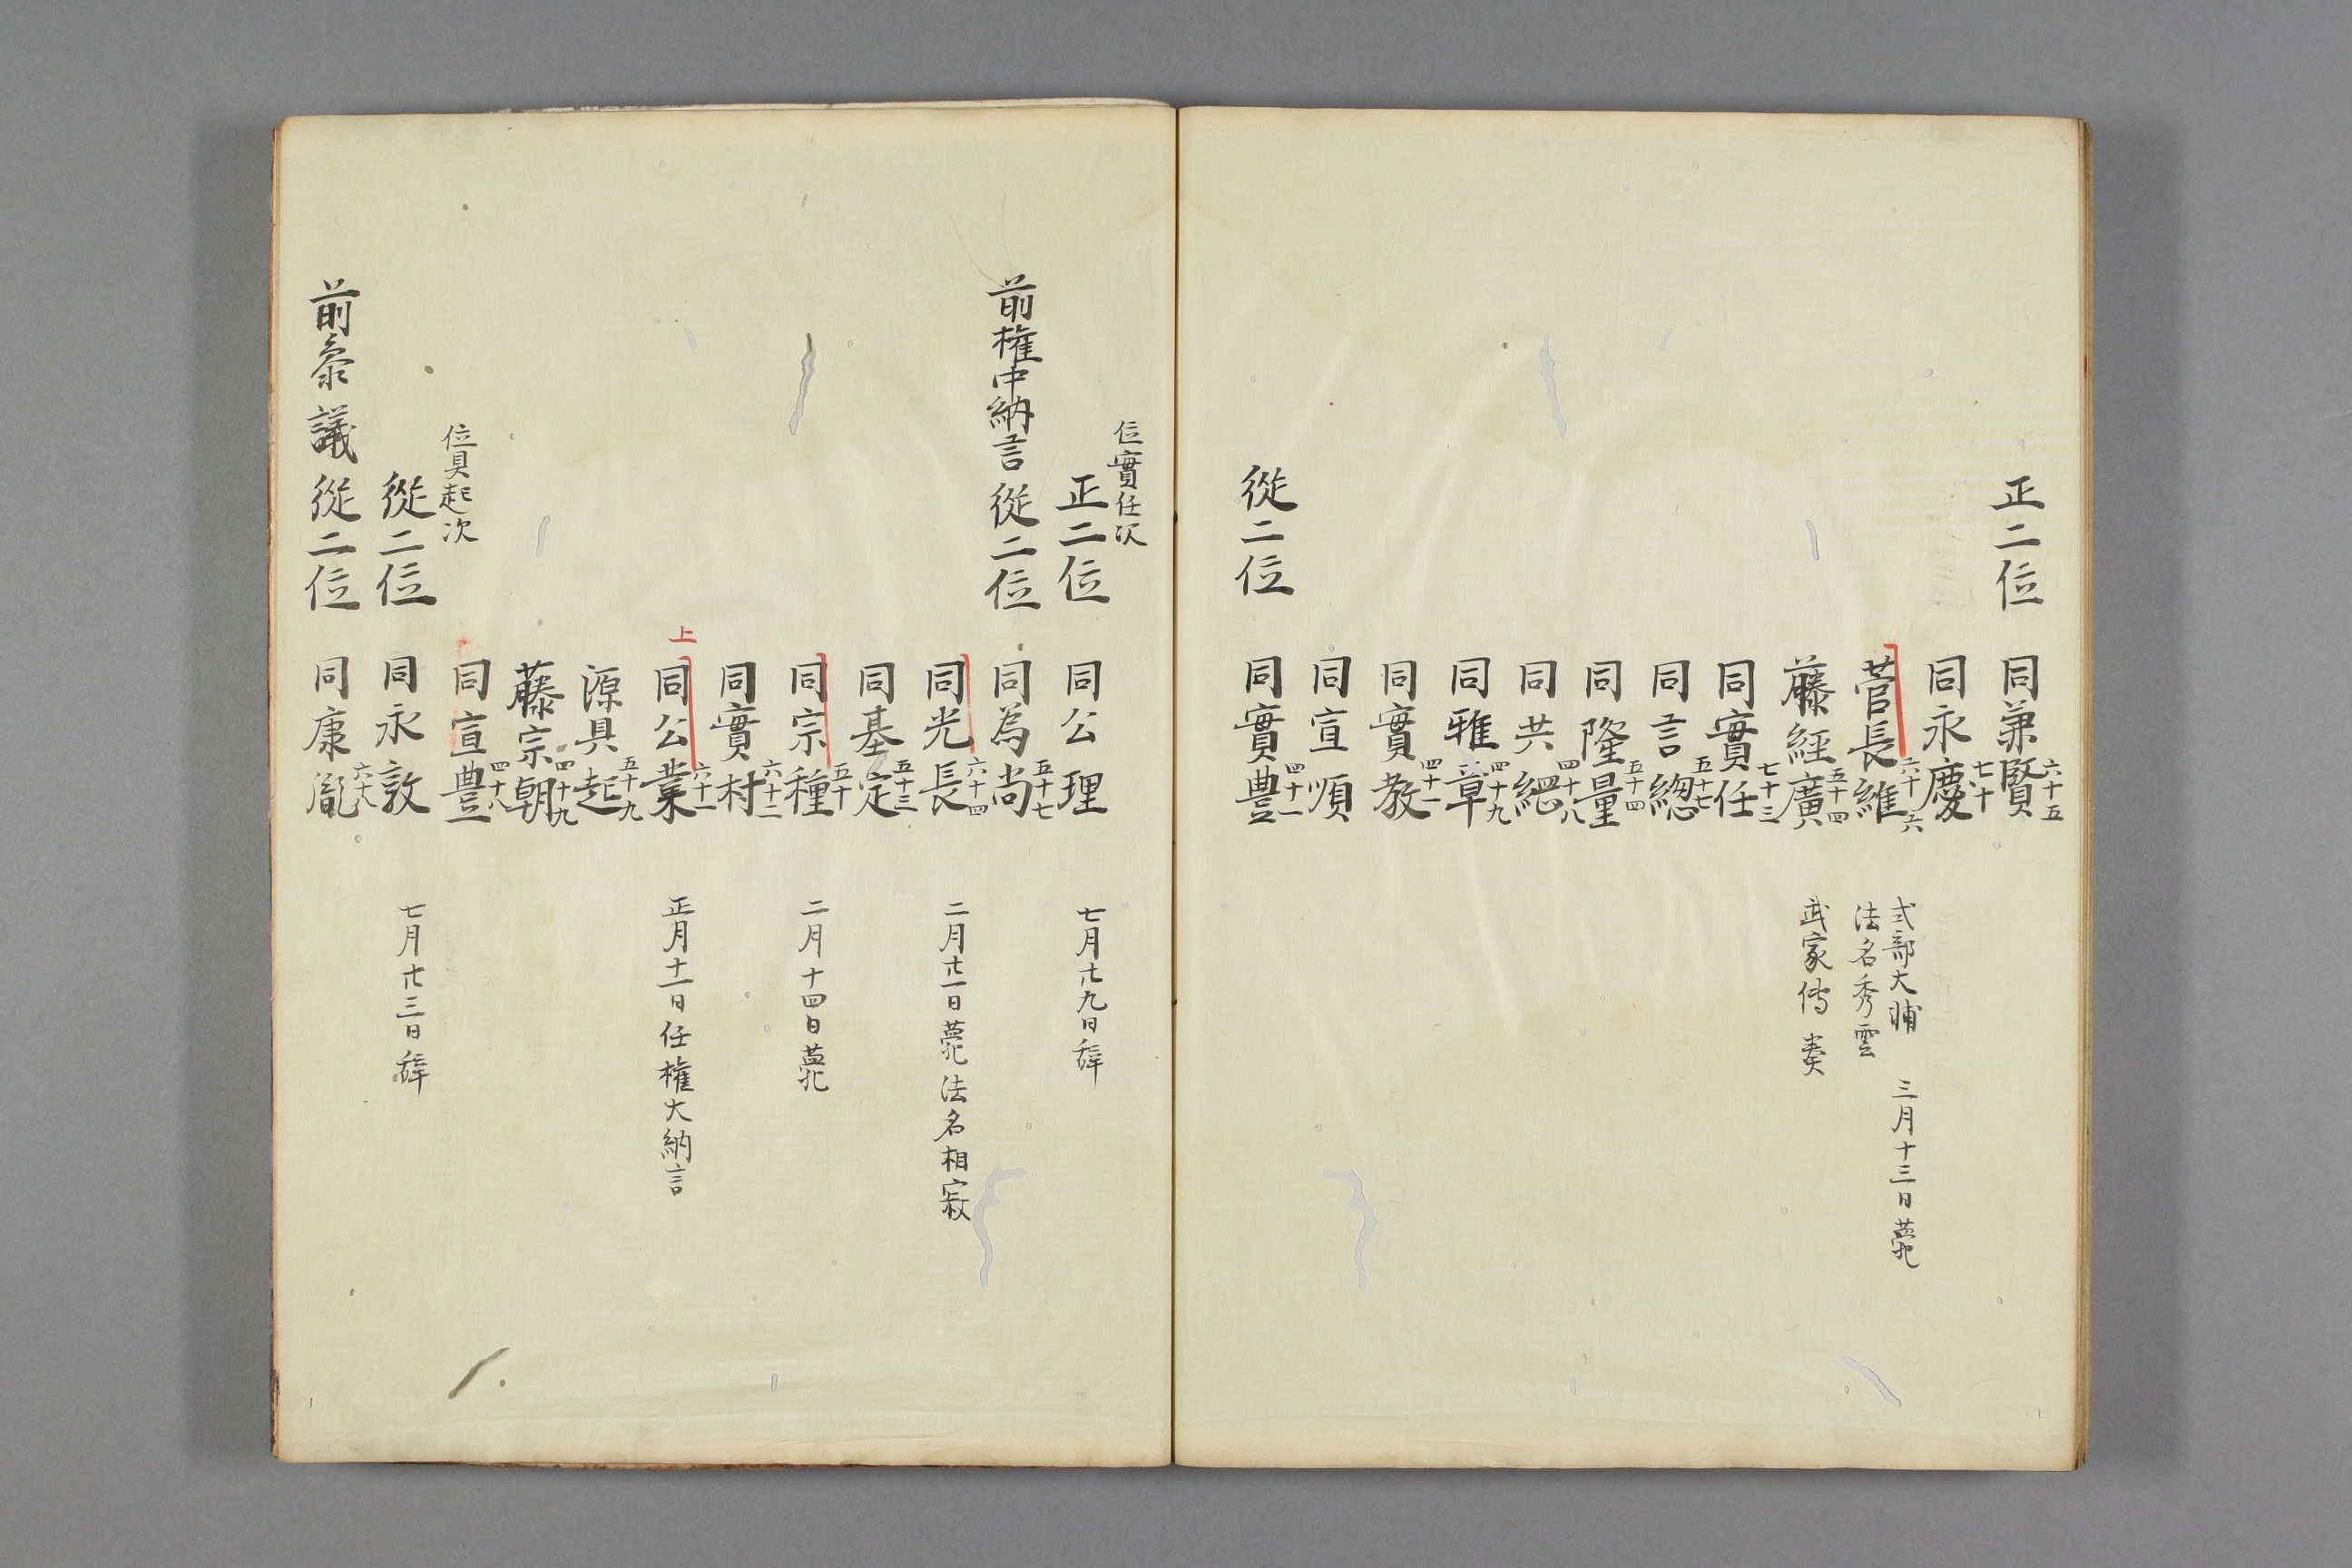 正二位 同兼賢 六十五
同永慶 七十
菅長維 六十六 式部大輔 三月十三日薨
法名秀雲
藤經廣 五十四 武家傳奏
同實任 七十三
同言總 五十七
同隆量 五十四
同共綱 四十八
同雅章 四十九
同實教 四十一
同宣順
從二位 同實豊 四十一
位實任次
正二位 同公理 七月廿九日辞
前權中納言 從二位 同為尚 五十七
同光長 六十四 二月廿一日薨 法名相寂
同基定 五十三
同宗種 五十 二月十四日薨
同實村 六十二
上 同公業 六十一 正月十一日任權大納言
源具起 五十九
藤宗朝 四十九
同宣豊 四十八
位具起次
從二位 同永敦 七月廿三日辞
前參議 從二位 同康胤 六十八